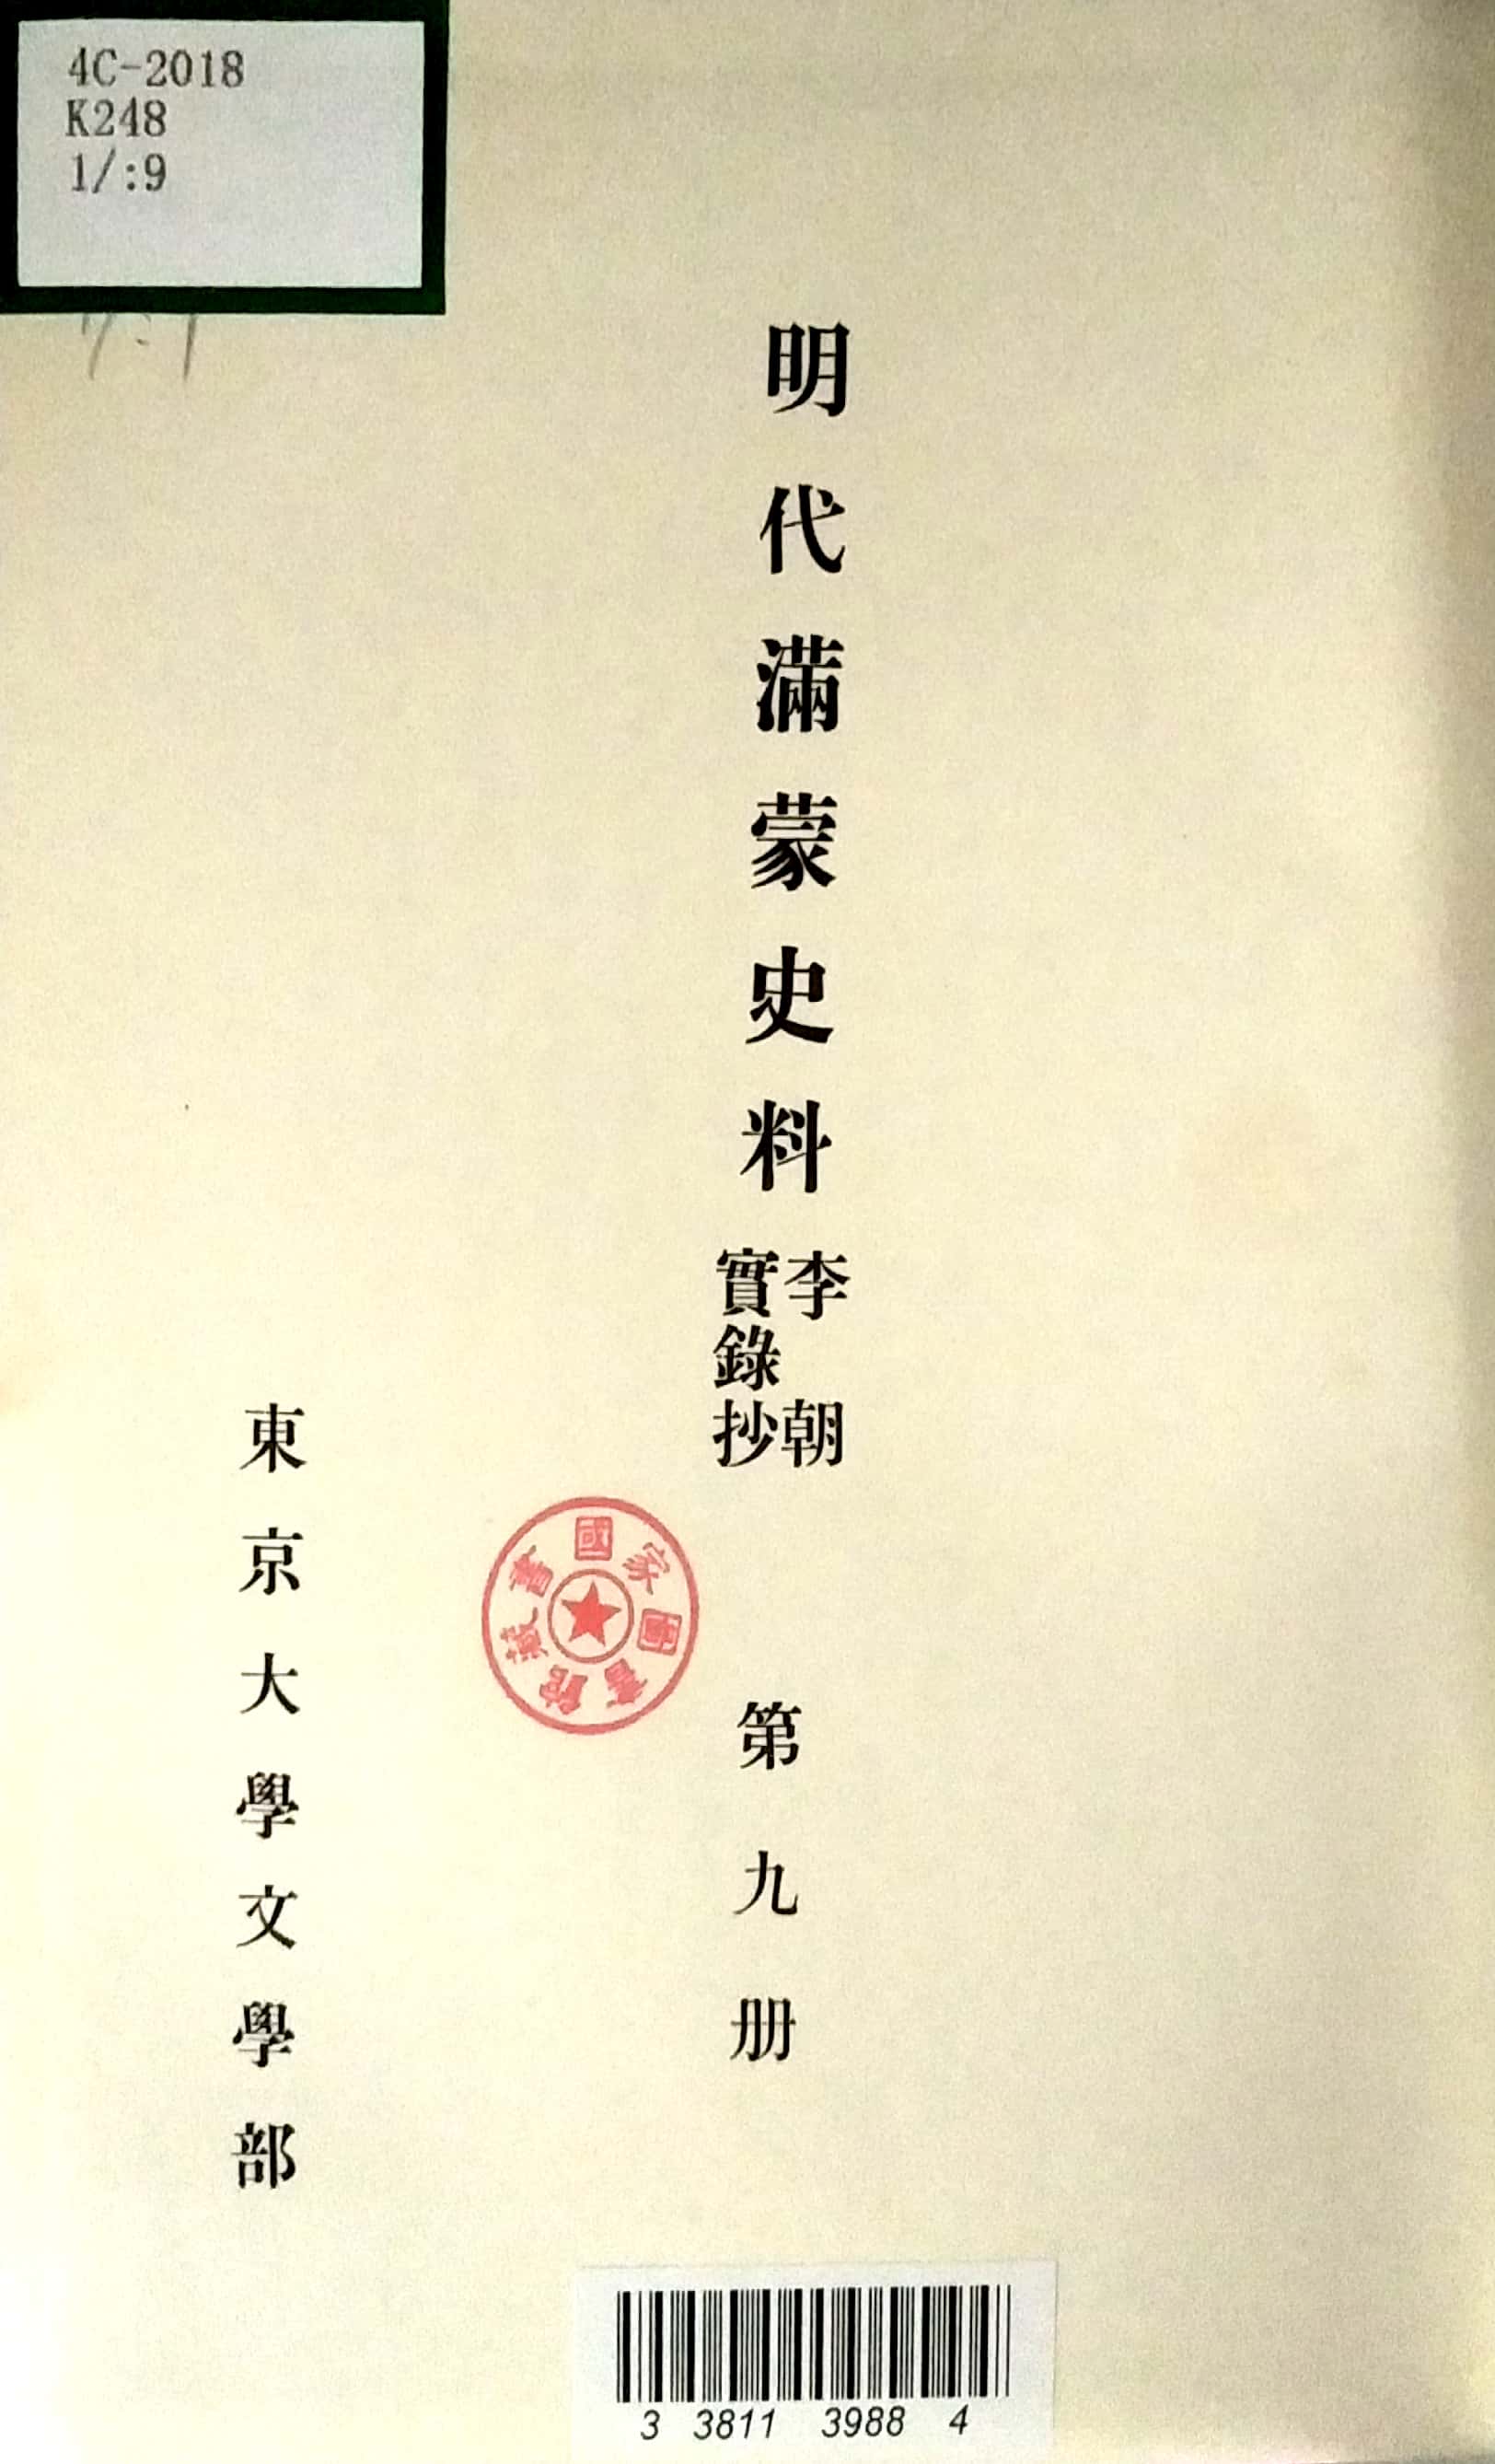 4C-2018
K248
1/:9
明代滿蒙史料
李朝
實錄抄
第九册
國家圖書館藏書
東京大學文學部
3 3811 3988 4